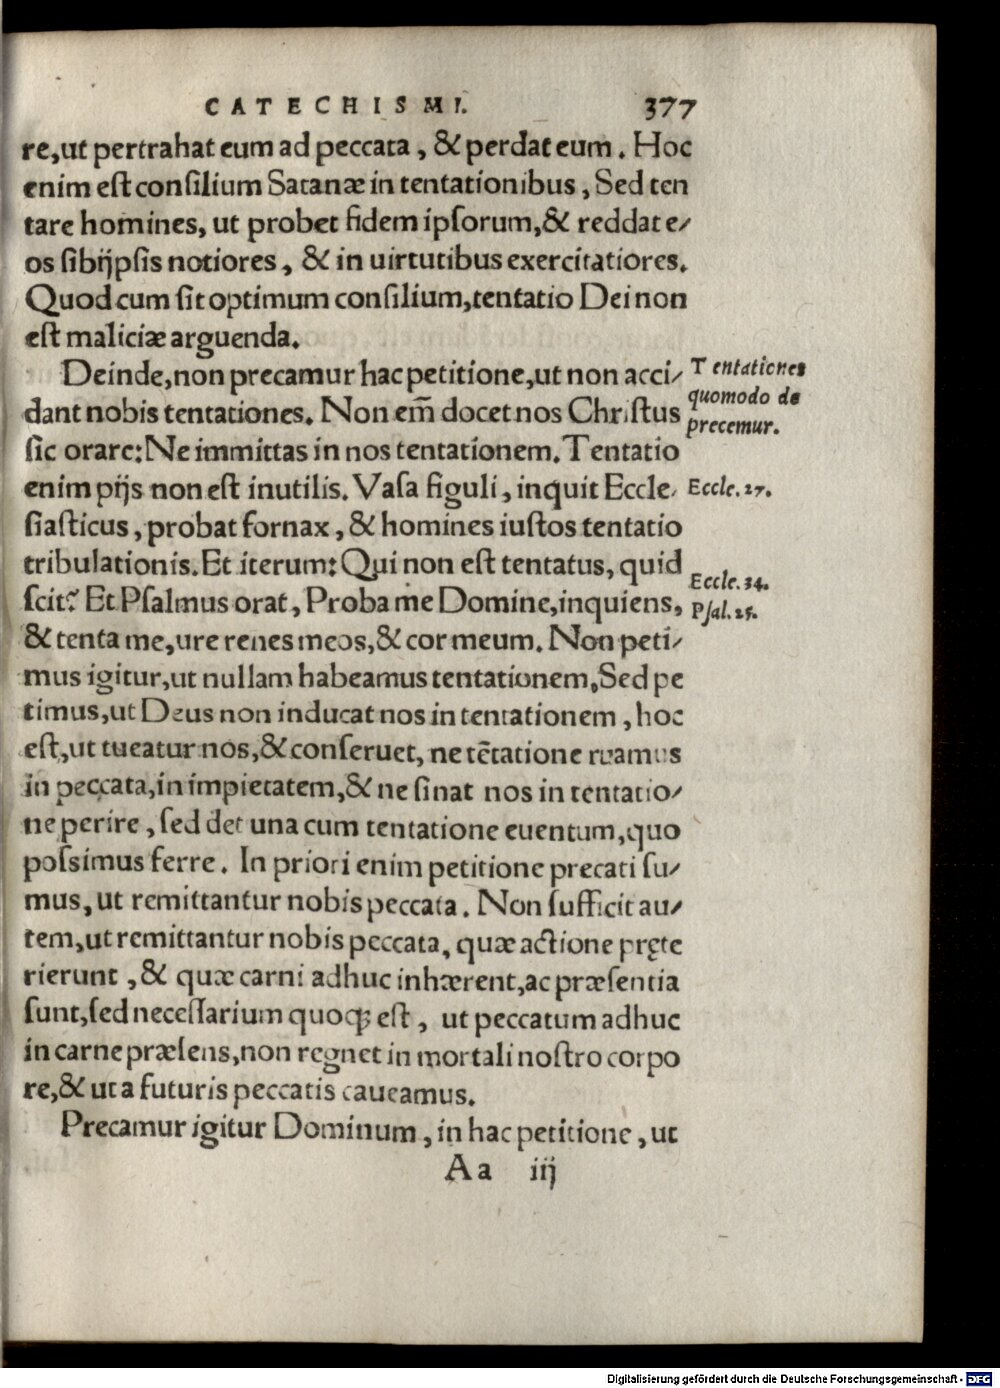 CATECHISMI. 377
re, ut pertrahat eum ad peccata, & perdat eum. Hoc
enim est consilium Satanæ in tentationibus, Sed ten
tare homines, ut probet fidem ipsorum, & reddat e⸗
os sibijpsis notiores, & in uirtutibus exercitatiores.
Quod cum sit optimum consilium, tentatio Dei non
est maliciæ arguenda.
Deinde, non precamur hac petitione, ut non acci⸗
dant nobis tentationes. Non em̄ docet nos Christus
sic orare: Ne immittas in nos tentationem. Tentatio
enim pijs non est inutilis. Vasa figuli, inquit Eccle⸗
siasticus, probat fornax, & homines iustos tentatio
tribulationis. Et iterum: Qui non est tentatus, quid
scit? Et Psalmus orat, Proba me Domine, inquiens,
& tenta me, ure renes meos, & cor meum. Non peti⸗
mus igitur, ut nullam habeamus tentationem, Sed pe
timus, ut Deus non inducat nos in tentationem, hoc
est, ut tueatur nos, & conseruet, ne tẽtatione ruamus
in peccata, in impietatem, & ne sinat nos in tentatio⸗
ne perire, sed det una cum tentatione euentum, quo
possimus ferre. In priori enim petitione precati su⸗
mus, ut remittantur nobis peccata. Non sufficit au⸗
tem, ut remittantur nobis peccata, quæ actione pręte
rierunt, & quæ carni adhuc inhærent, ac præsentia
sunt, sed necessarium quoq; est, ut peccatum adhuc
in carne præsens, non regnet in mortali nostro corpo
re, & ut a futuris peccatis caueamus.
Precamur igitur Dominum, in hac petitione, ut
Aa iij
Tentationes
quomodo de
precemur.
Eccle. 27.
Eccle. 34.
Psal. 25.
Digitalisierung gefördert durch die Deutsche Forschungsgemeinschaft - DFG